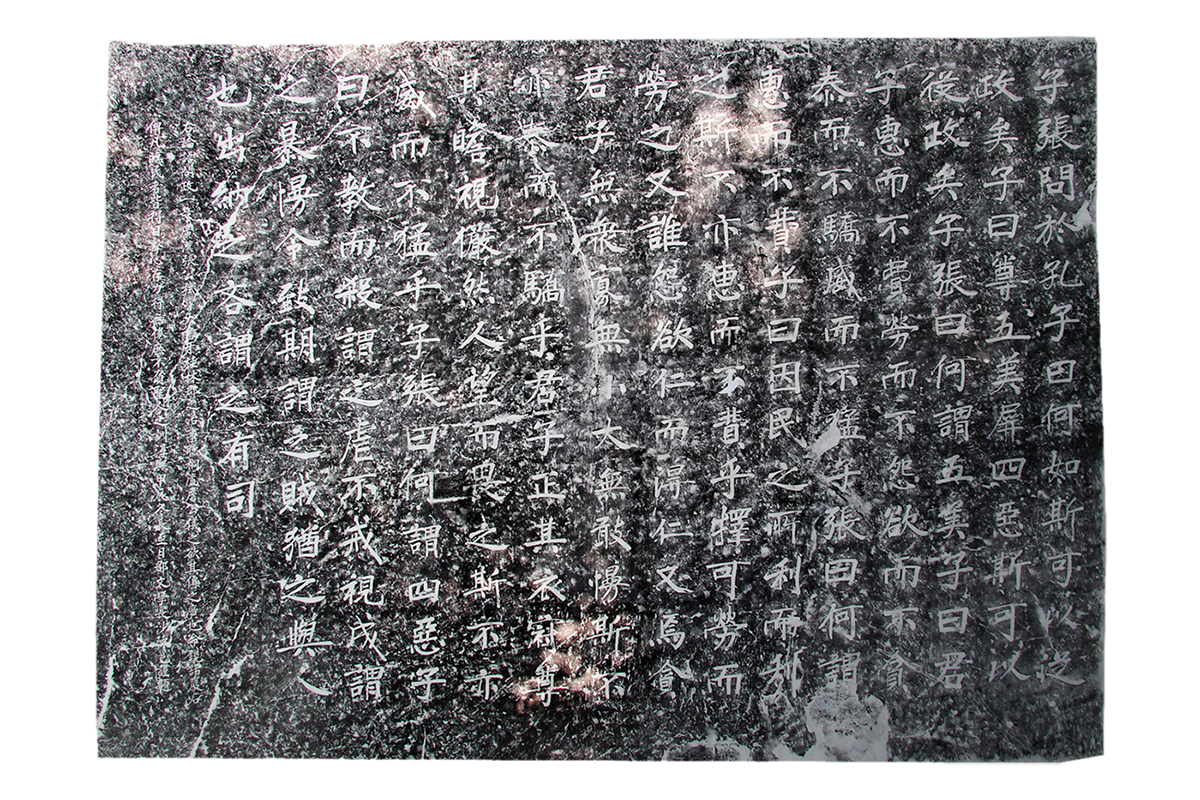 子張問於孔子曰何如斯可以從
政矣子曰尊五美屏四惡斯可以
從政矣子張曰何謂五美子曰君
子惠而不費勞而不怨欲而不貪
泰而不驕威而不猛子張曰何謂
惠而不費子曰因民之所利而利
之斯不亦惠而不費乎擇可勞而
勞之又誰怨欲仁而得仁又焉貪
君子無衆寡無小大無敢慢斯不
亦泰而不驕乎君子正其衣冠尊
其瞻視儼然人望而畏之斯不亦
威而不猛乎子張曰何謂四惡子
曰不教而殺謂之虐不戒視成謂
之暴慢令致期謂之賊猶之與人
也出納之吝謂之有司